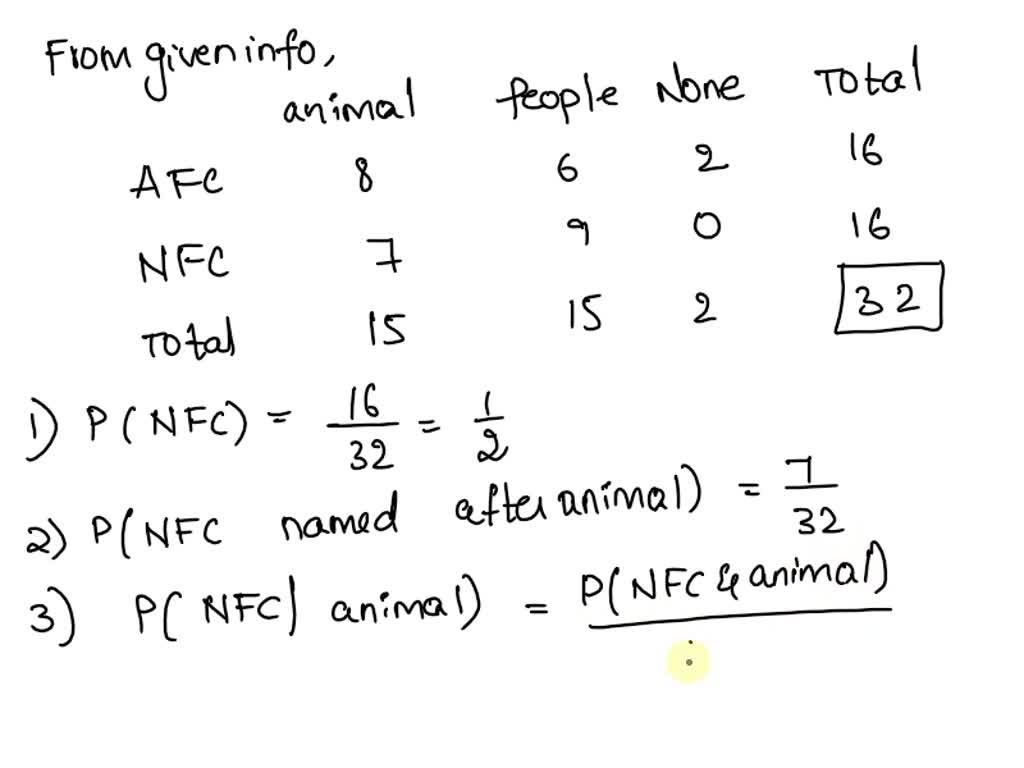 From given info,
animal people None Total
AFC 8 6 2 16
NFC 7 9 0 16
Total 15 15 2 32
1) P(NFC) = 16/32 = 1/2
2) P(NFC named after animal) = 7/32
3) P(NFC | animal) = P(NFC & animal)